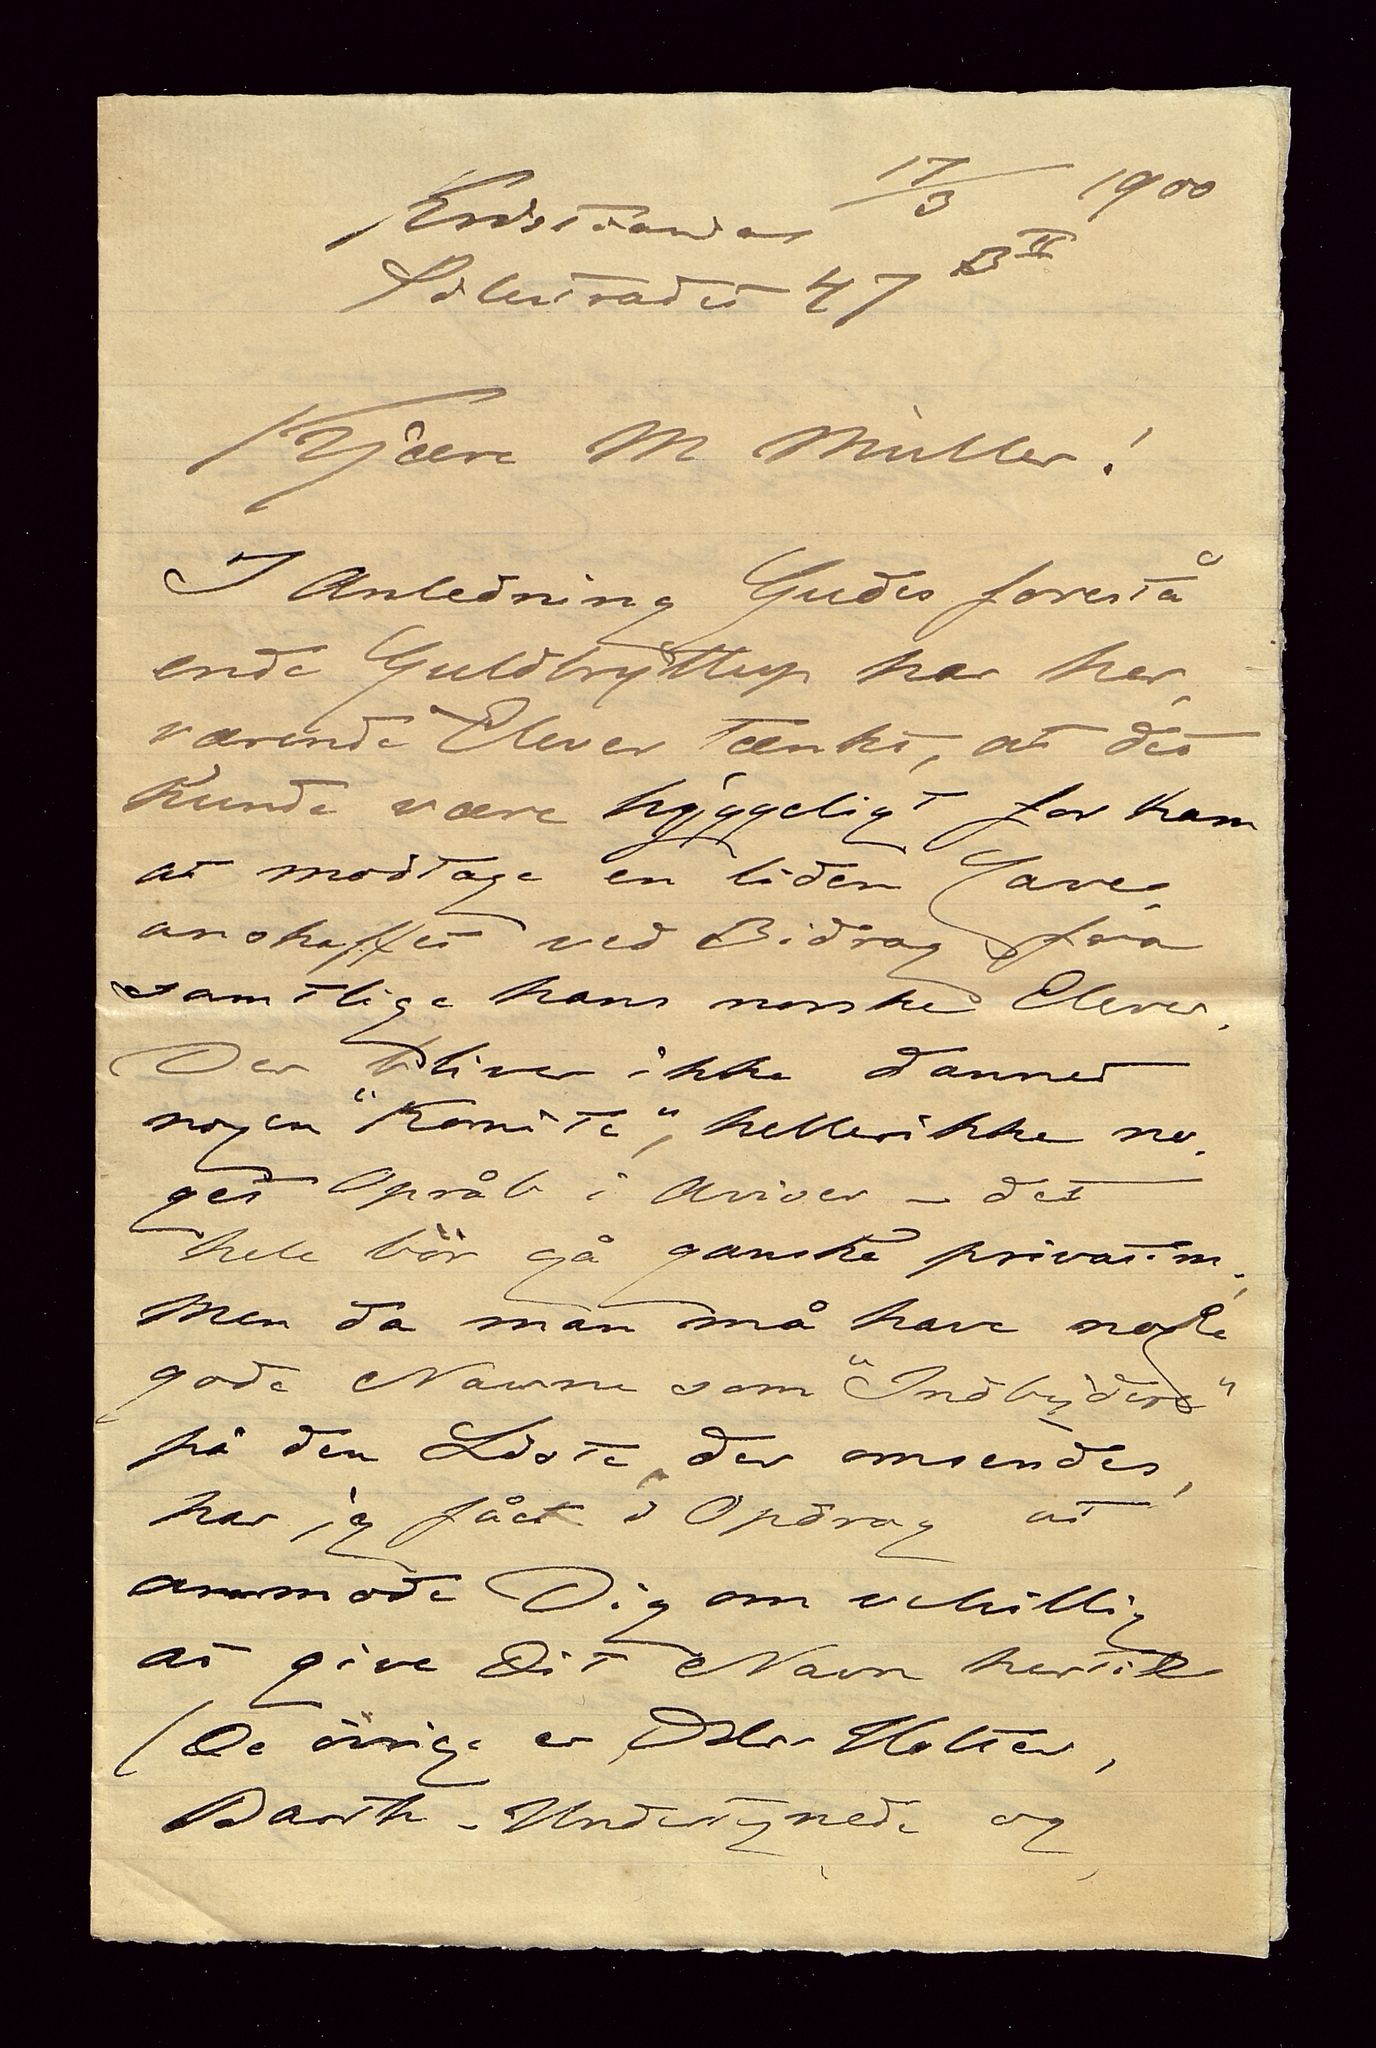 Kristiania 17/3 1900
Pilestrædet 47 B II
Kjære M Müller!
I Anledning Gudes forestå
ende Guldbryllup har her,
værende Elever tænkt, at det
kunde være hyggeligt for ham
at modtage en liden Gave,
anskaffet ved Bidrag fra
samtlige hans norske Elever.
Der bliver ikke dannet
nogen "Komite", hellerikke no,
get Opråb i Aviser – det
hele bör gå ganske privatim,
Men da man må have nogle
gode Navne som "Indbydere"
på den Liste, der omsendes,
har jeg fået i Opdrag at
anmode Dig om velvillig
at give Dit Navn hertil
(De övrige er Holter,
Barth – Undertegnede og